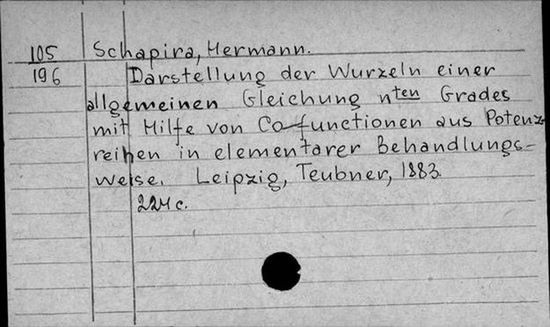 105 Schapira, Hermann.
196 Darstellung der Wurzeln einer
allgemeinen Gleichung nten Grades
mit Hilfe von Co-functionen aus Potenz-
reihen in elementarer Behandlungs-
weise. Leipzig, Teubner, 1883.
224 c.